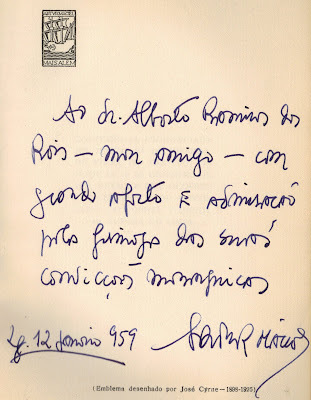 MAIS ALÉM
Ao dr. Alberto Ramires dos
Reis — meu amigo — com
grande afecto e admiração
pela firmeza das suas
convicções monarquicas
12 janeiro 959
(Emblema desenhado por José Cyrne — 1888-1895)